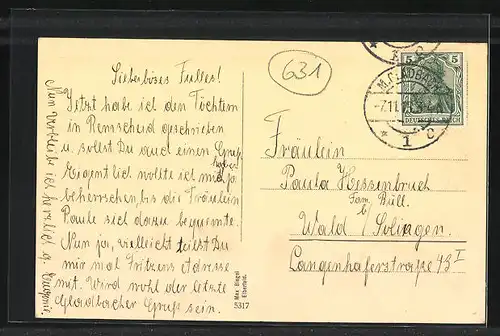 Liebes böses Fulles!
Jetzt habe ich den Töchtern
in Remscheid geschrieben
u. sollst Du auch einen Gruß
haben
Eigentlich wollte ich mich ja
beherrschen, bis die Fräulein
Paule sich dazu bequemte.
Nun ja, vielleicht teilst Du
mir mal Fritzens Adresse
mit. Wird wohl der letzte
Gladbacher Gruß sein.
Nun verbleibe ich herzlich g. Eugenie
631
5 5
DEUTSCHES REICH
M. GLADBACH
-7.11.
* 1 c
Fräulein
Paula Hessenbruch
Fam. Büll.
Wald b/ Solingen.
Langenhaferstraße 43 I
Max Biegel
Elberfeld.
5317